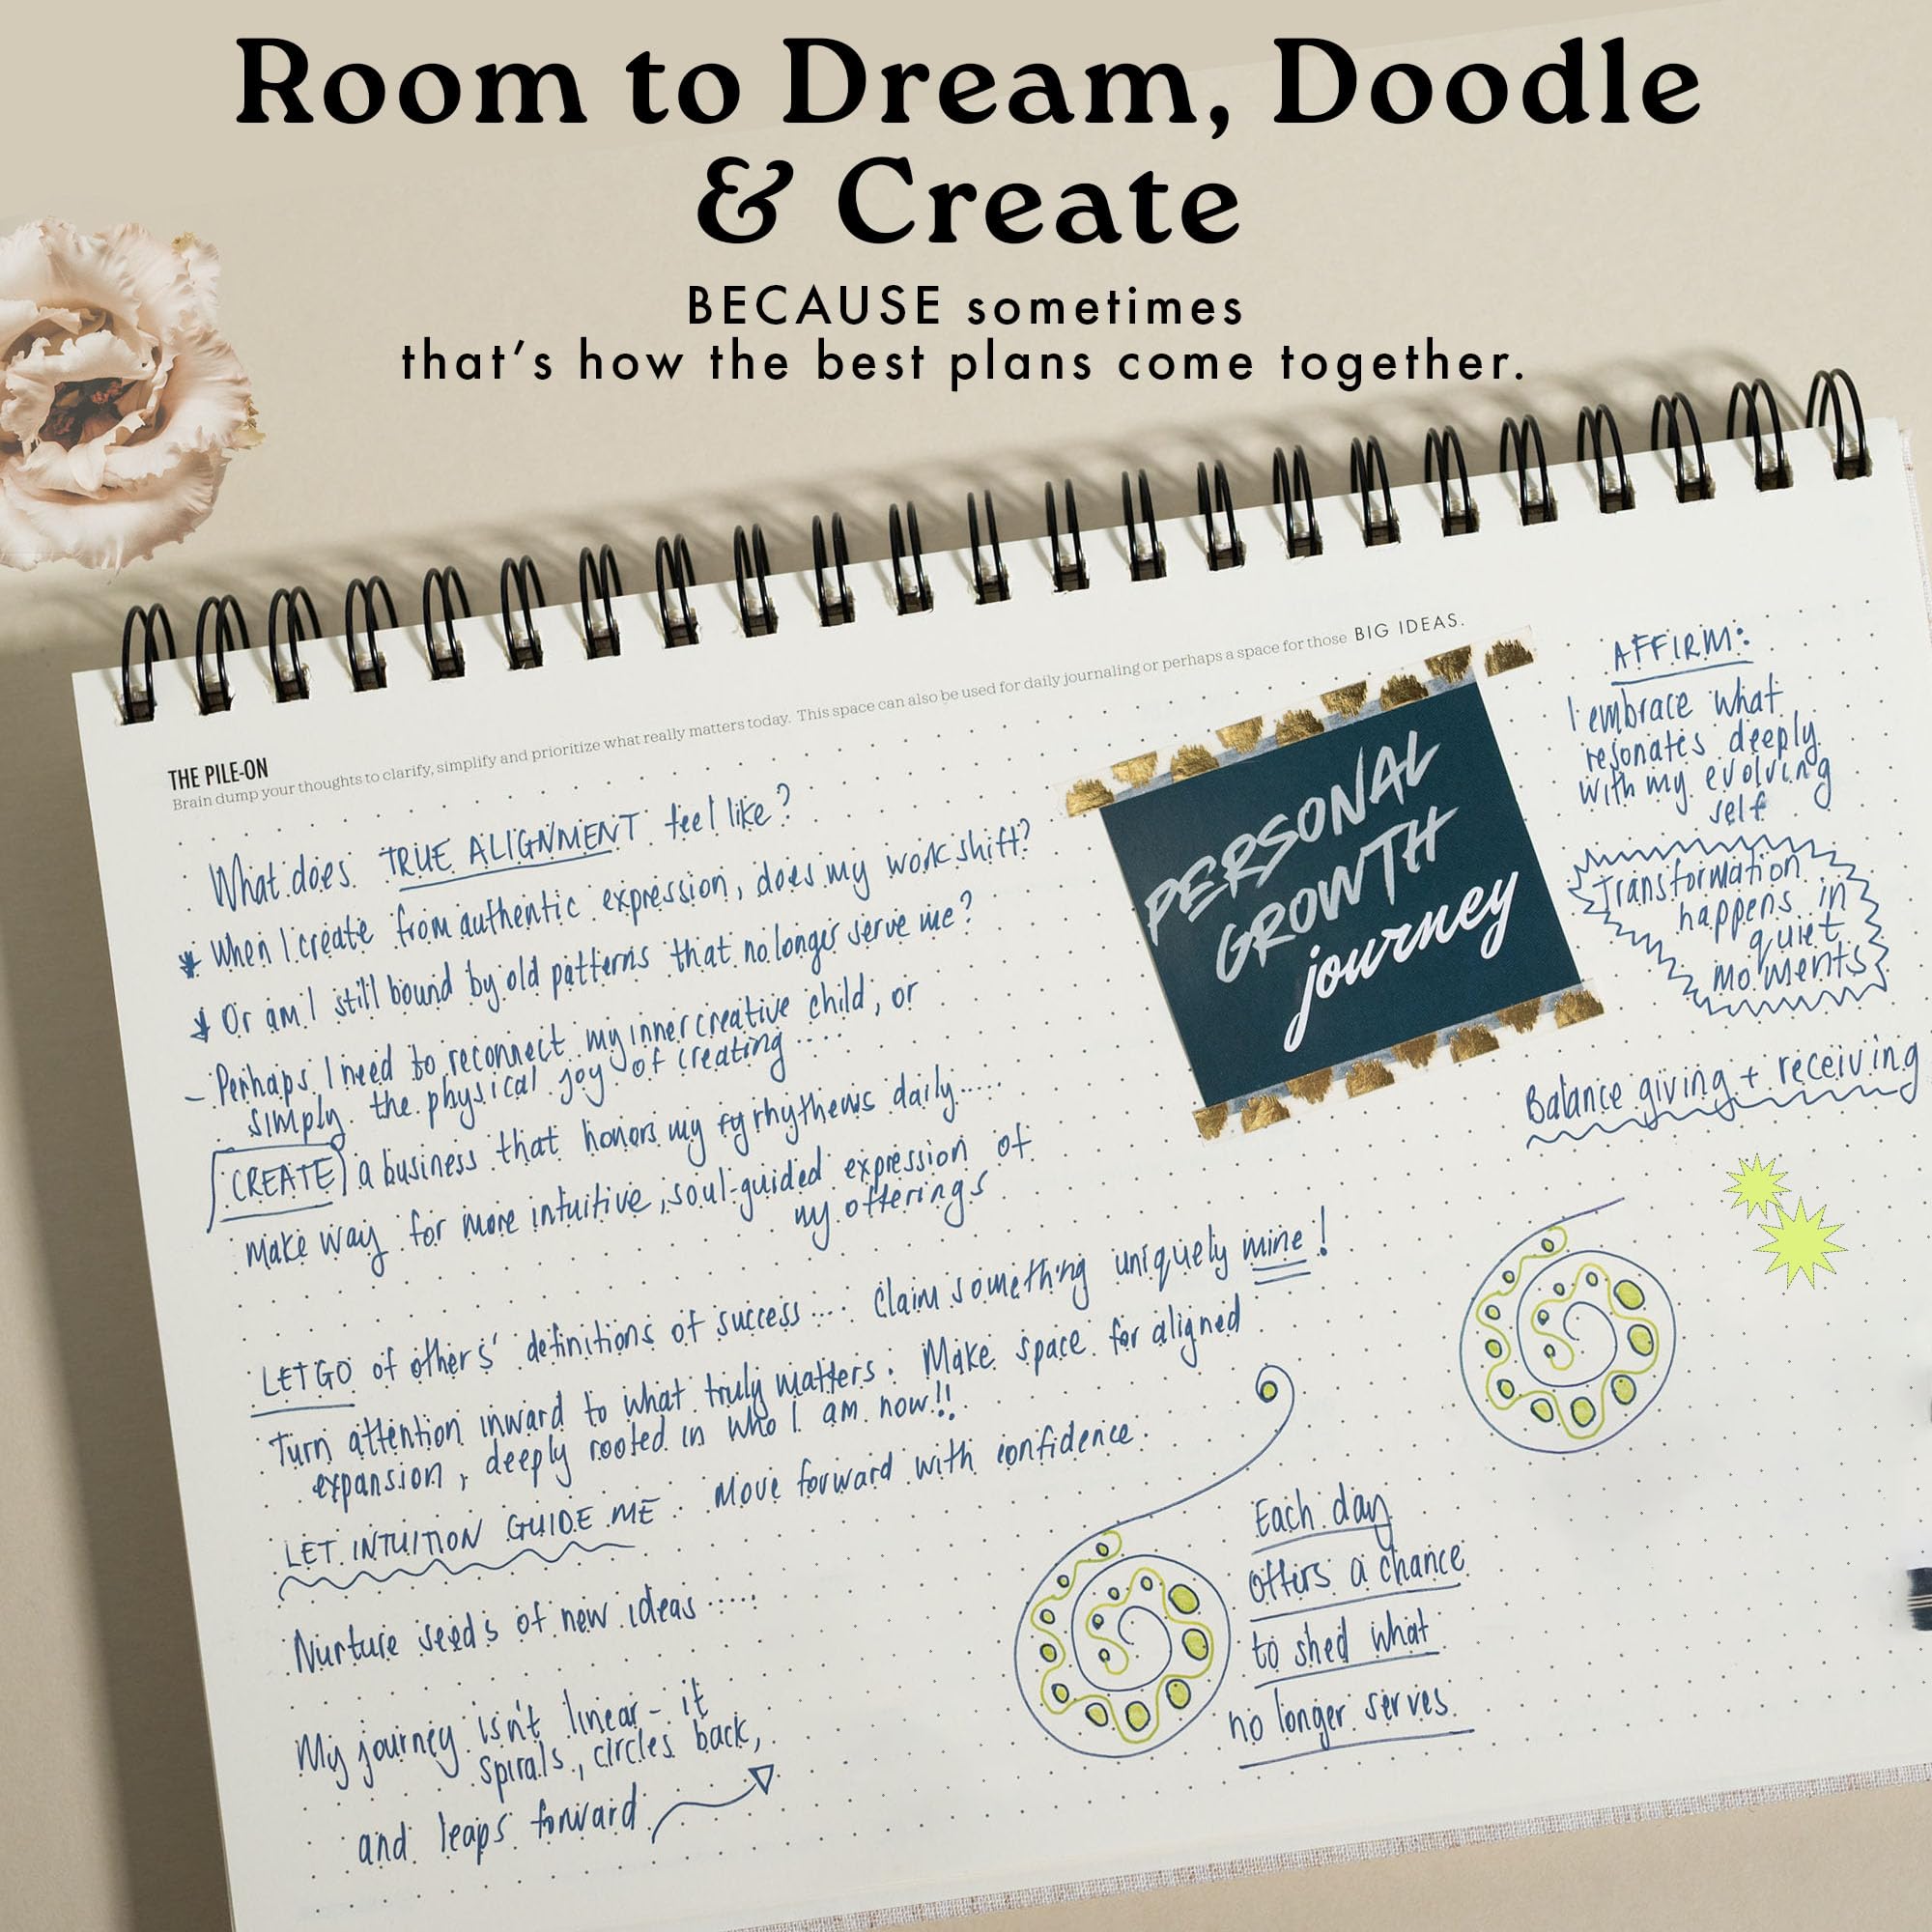 Room to Dream, Doodle
& Create
BECAUSE sometimes
that's how the best plans come together.
THE PILE-ON
Brain dump your thoughts to clarify, simplify and prioritize what really matters today. This space can also be used for daily journaling or perhaps a space for those BIG IDEAS.
What does TRUE ALIGNMENT feel like?
* When I create from authentic expression, does my work shift?
* Or am I still bound by old patterns that no longer serve me?
- Perhaps I need to reconnect my inner creative child, or
simply the physical joy of creating ....
CREATE a business that honors my rhythems daily.....
Make way for more intuitive, soul-guided expression of
my offerings
LET GO of others' definitions of success .... Claim something uniquely mine!
Turn attention inward to what truly matters. Make space for aligned
expansion, deeply rooted in who I am now!!
LET INTUITION GUIDE ME. Move forward with confidence.
Nurture seeds of new ideas .....
My journey isn't linear - it
spirals, circles back,
and leaps forward
PERSONAL
GROWTH
journey
AFFIRM:
I embrace what
resonates deeply
with my evolving
self
Transformation
happens in
quiet
moments
Balance giving + receiving
Each day
offers a chance
to shed what
no longer serves.